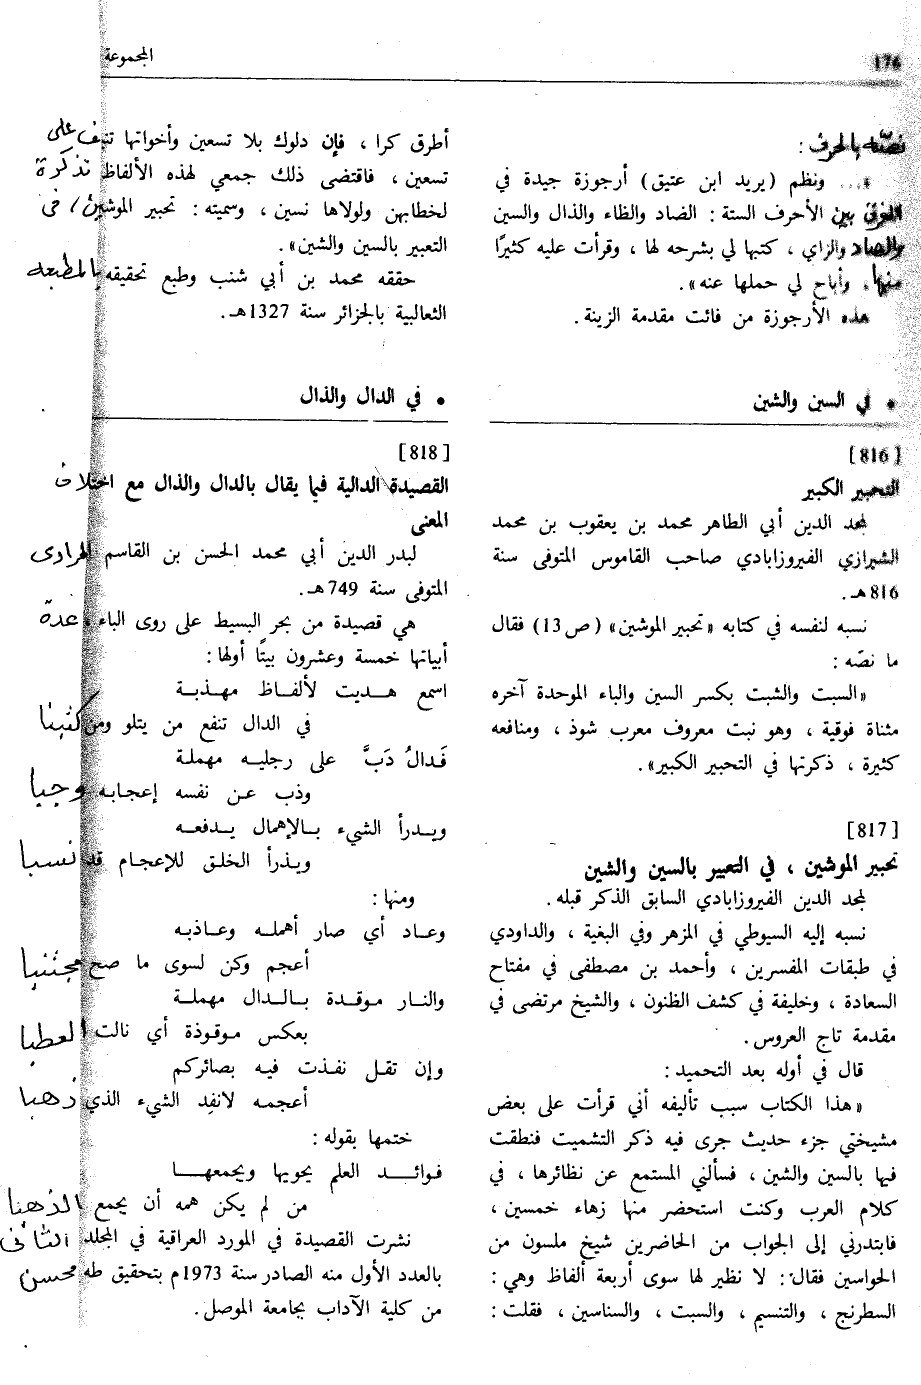 176
المجموعة
نصّه بالحرف :
«... ونظم (يريد ابن عتيق) أرجوزة جيدة في
الفرق بين الأحرف الستة : الضاد والظاء والذال والسين
والصاد والزاي ، كتبها لي بشرحه لها ، وقرأت عليه كثيرًا
منها، وأباح لي حملها عنه».
هذه الأرجوزة من فائت مقدمة الزينة .
• في السين والشين
[816]
التحبير الكبير
لمجد الدين أبي الطاهر محمد بن يعقوب بن محمد
الشيرازي الفيروزابادي صاحب القاموس المتوفى سنة
816هـ .
نسبه لنفسه في كتابه «تحبير الموشين» (ص13) فقال
ما نصّه :
«السبت والشبت بكسر السين والباء الموحدة آخره
مثناة فوقية ، وهو نبت معروف معرب شوذ ، ومنافعه
كثيرة ، ذكرتها في التحبير الكبير».
[817]
تحبير الموشين ، في التعبير بالسين والشين
لمجد الدين الفيروزابادي السابق الذكر قبله .
نسبه إليه السيوطي في المزهر وفي البغية ، والداودي
في طبقات المفسرين ، وأحمد بن مصطفى في مفتاح
السعادة ، وخليفة في كشف الظنون ، والشيخ مرتضى في
مقدمة تاج العروس .
قال في أوله بعد التحميد :
«هذا الكتاب سبب تأليفه أني قرأت على بعض
مشيختي جزء حديث جرى فيه ذكر التشميت فنطقت
فيها بالسين والشين ، فسألني المستمع عن نظائرها ، في
كلام العرب وكنت استحضر منها زهاء خمسين ،
فابتدرني إلى الجواب من الحاضرين شيخ ملسون من
الحواسين فقال : لا نظير لها سوى أربعة ألفاظ وهي :
السطرنج ، والتنسيم ، والسبت ، والسناسين ، فقلت :
أطرق كرا ، فإن دلوك بلا تسعين وأخواتها تنيف على
تسعين ، فاقتضى ذلك جمعي لهذه الألفاظ تذكرة
لخطابهن ولولاها نسين ، وسميته : تحبير الموشين / في
التعبير بالسين والشين».
حققه محمد بن أبي شنب وطبع تحقيقه بالمطبعه
الثعالبية بالجزائر سنة 1327هـ .
• في الدال والذال
[818]
القصيدة الدالية فيما يقال بالدال والذال مع اختلاف
المعنى
لبدر الدين أبي محمد الحسن بن القاسم المرادى
المتوفى سنة 749هـ .
هي قصيدة من بحر البسيط على روى الباء ، عدة
أبياتها خمسة وعشرون بيتًا أولها :
اسمع هديت لألفاظ مهذبة
في الدال تنفع من يتلو ومن كتبنا
فَدالُ دَبَّ على رجليه مهملة
وذب عن نفسه إعجابه وجبا
ويدرأ الشيء بالإهمال يدفعه
ويذرأ الخلق للإعجام قد نسبا
ومنها :
وعاد أي صار أهمله وعاذبه
أعجم وكن لسوى ما صح مجتنبا
والنار موقدة بالدال مهملة
بعكس موقوذة أي نالت العطبا
وإن تقل نفذت فيه بصائركم
أعجمه لانفِد الشيء الذي ذهبا
ختمها بقوله :
فوائد العلم يحويها ويجمعها
من لم يكن همه أن يجمع الذهبا
نشرت القصيدة في المورد العراقية في المجلد الثانى
بالعدد الأول منه الصادر سنة 1973م بتحقيق طه محسن
من كلية الآداب بجامعة الموصل .